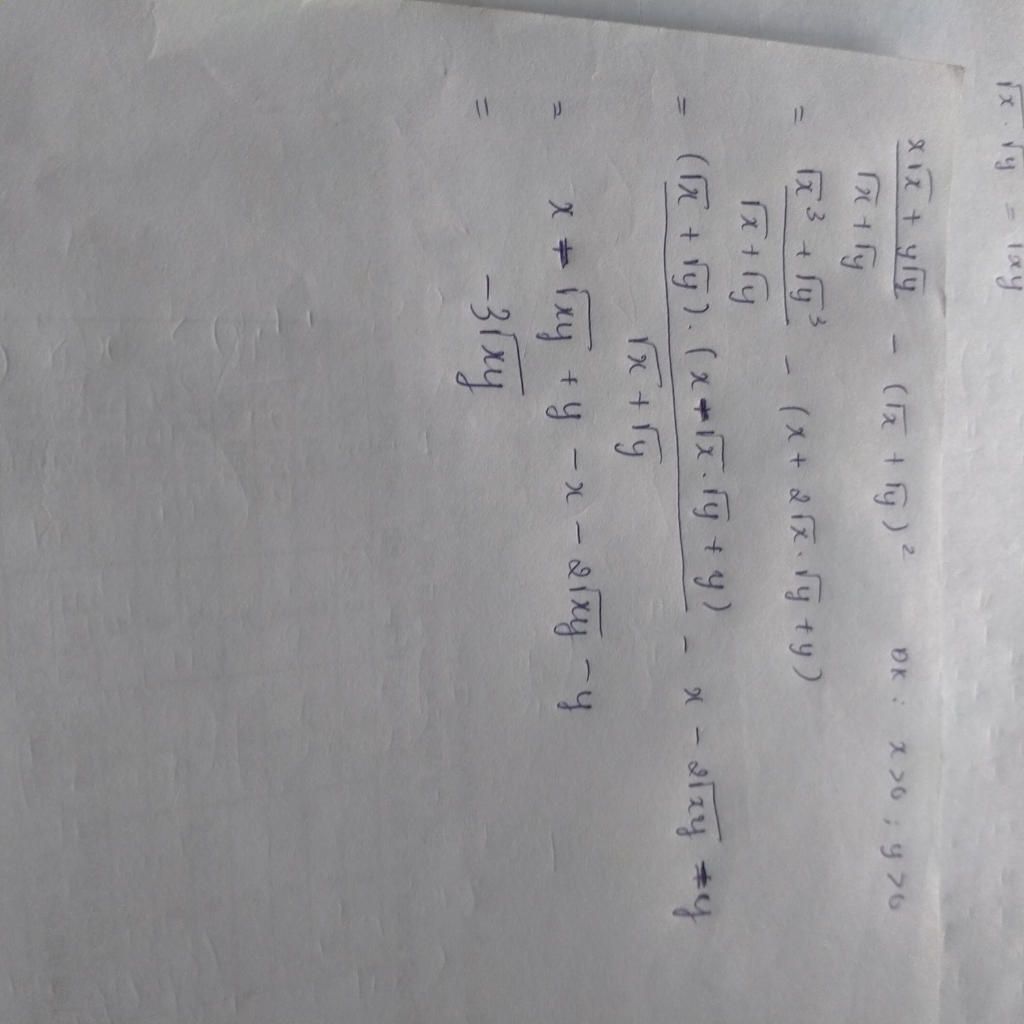 √x · √y = √xy
x√x + y√y / √x + √y - (√x + √y)² ĐK: x>0; y>0
= √x³ + √y³ / √x + √y - (x + 2√x · √y + y)
= (√x + √y) · (x - √x · √y + y) / √x + √y - x - 2√xy - y
= x - √xy + y - x - 2√xy - y
= -3√xy